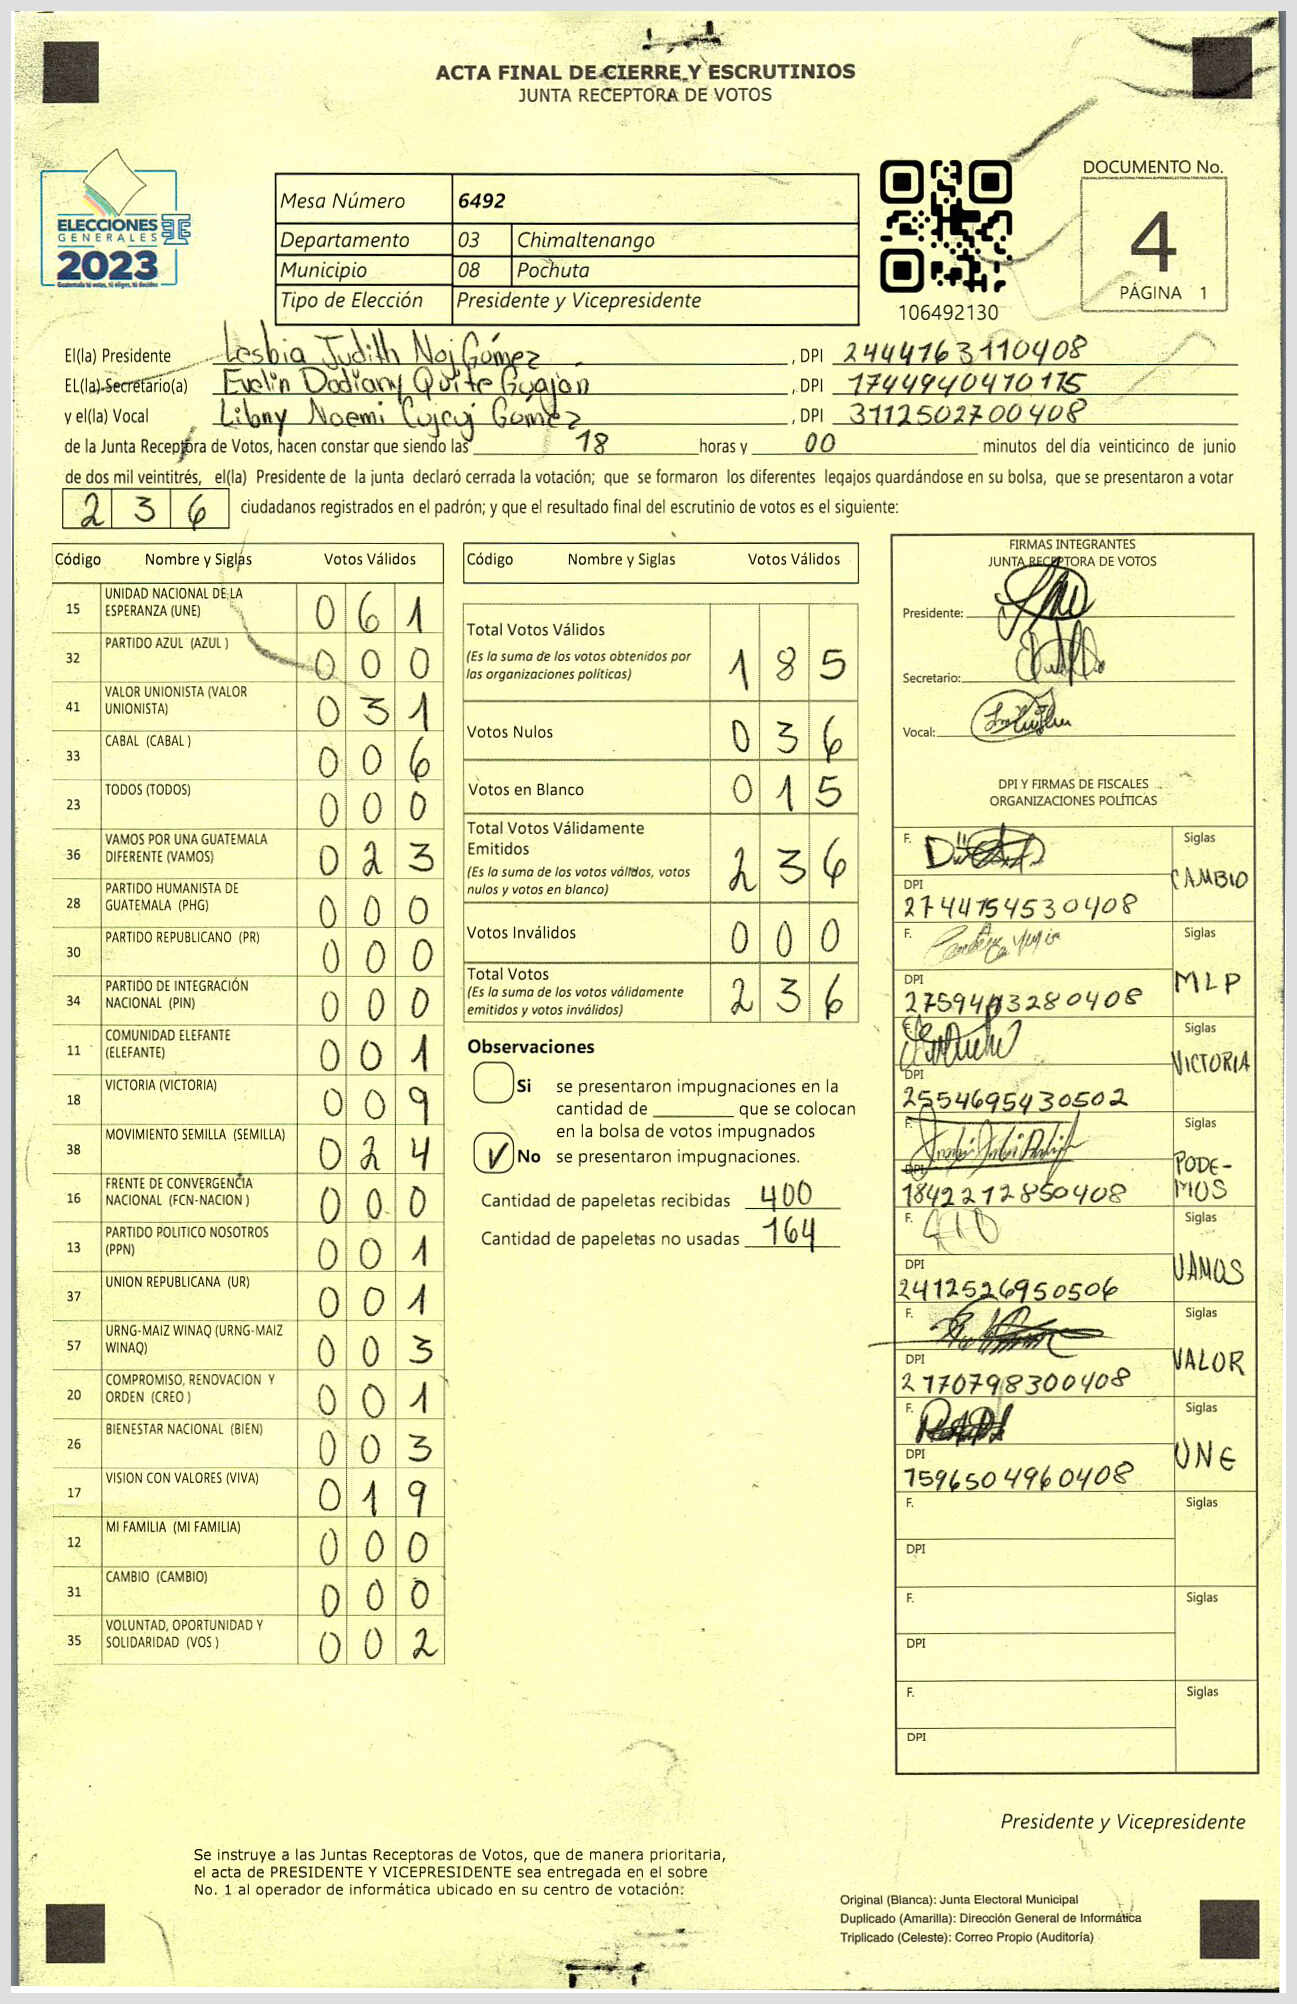 ACTA FINAL DE CIERRE Y ESCRUTINIOS
JUNTA RECEPTORA DE VOTOS
ELECCIONES
GENERALES
2023
Guatemala tú votas, tú eliges, tú decides
Mesa Número 6492
Departamento 03 Chimaltenango
Municipio 08 Pochuta
Tipo de Elección Presidente y Vicepresidente
106492130
DOCUMENTO No.
4
PÁGINA 1
El(la) Presidente Lesbia Judith Noj Gómez , DPI 2444763110408
EL(la) Secretario(a) Evelin Dadiany Quite Guajan , DPI 1744940410115
y el(la) Vocal Libny Noemi Cujcuj Gómez , DPI 3112502700408
de la Junta Receptora de Votos, hacen constar que siendo las 18 horas y 00 minutos del día veinticinco de junio
de dos mil veintitrés, el(la) Presidente de la junta declaró cerrada la votación; que se formaron los diferentes legajos guardándose en su bolsa, que se presentaron a votar
2 3 6 ciudadanos registrados en el padrón; y que el resultado final del escrutinio de votos es el siguiente:
Código Nombre y Siglas Votos Válidos
15 UNIDAD NACIONAL DE LA ESPERANZA (UNE) 0 6 1
32 PARTIDO AZUL (AZUL ) 0 0 0
41 VALOR UNIONISTA (VALOR UNIONISTA) 0 3 1
33 CABAL (CABAL ) 0 0 6
23 TODOS (TODOS) 0 0 0
36 VAMOS POR UNA GUATEMALA DIFERENTE (VAMOS) 0 2 3
28 PARTIDO HUMANISTA DE GUATEMALA (PHG) 0 0 0
30 PARTIDO REPUBLICANO (PR) 0 0 0
34 PARTIDO DE INTEGRACIÓN NACIONAL (PIN) 0 0 0
11 COMUNIDAD ELEFANTE (ELEFANTE) 0 0 1
18 VICTORIA (VICTORIA) 0 0 9
38 MOVIMIENTO SEMILLA (SEMILLA) 0 2 4
16 FRENTE DE CONVERGENCIA NACIONAL (FCN-NACION ) 0 0 0
13 PARTIDO POLITICO NOSOTROS (PPN) 0 0 1
37 UNION REPUBLICANA (UR) 0 0 1
57 URNG-MAIZ WINAQ (URNG-MAIZ WINAQ) 0 0 3
20 COMPROMISO, RENOVACION Y ORDEN (CREO ) 0 0 1
26 BIENESTAR NACIONAL (BIEN) 0 0 3
17 VISION CON VALORES (VIVA) 0 1 9
12 MI FAMILIA (MI FAMILIA) 0 0 0
31 CAMBIO (CAMBIO) 0 0 0
35 VOLUNTAD, OPORTUNIDAD Y SOLIDARIDAD (VOS ) 0 0 2
Código Nombre y Siglas Votos Válidos
Total Votos Válidos
(Es la suma de los votos obtenidos por las organizaciones políticas) 1 8 5
Votos Nulos 0 3 6
Votos en Blanco 0 1 5
Total Votos Válidamente Emitidos
(Es la suma de los votos válidos, votos nulos y votos en blanco) 2 3 6
Votos Inválidos 0 0 0
Total Votos
(Es la suma de los votos válidamente emitidos y votos inválidos) 2 3 6
Observaciones
Si se presentaron impugnaciones en la
cantidad de ________ que se colocan
en la bolsa de votos impugnados
✓ No se presentaron impugnaciones.
Cantidad de papeletas recibidas 400
Cantidad de papeletas no usadas 164
FIRMAS INTEGRANTES
JUNTA RECEPTORA DE VOTOS
Presidente:
Secretario:
Vocal:
DPI Y FIRMAS DE FISCALES
ORGANIZACIONES POLÍTICAS
F. Siglas
CAMBIO
DPI
2744754530408
F. Siglas
MLP
DPI
F. Siglas
VICTORIA
DPI
2554695430502
F. Siglas
PODE-
MOS
DPI
1842272850408
F. Siglas
VAMOS
DPI
2412526950506
F. Siglas
VALOR
DPI
2770798300408
F. Siglas
UNE
DPI
7596504960408
F. Siglas
DPI
F. Siglas
DPI
F. Siglas
DPI
Presidente y Vicepresidente
Se instruye a las Juntas Receptoras de Votos, que de manera prioritaria,
el acta de PRESIDENTE Y VICEPRESIDENTE sea entregada en el sobre
No. 1 al operador de informática ubicado en su centro de votación:
Original (Blanca): Junta Electoral Municipal
Duplicado (Amarilla): Dirección General de Informática
Triplicado (Celeste): Correo Propio (Auditoría)